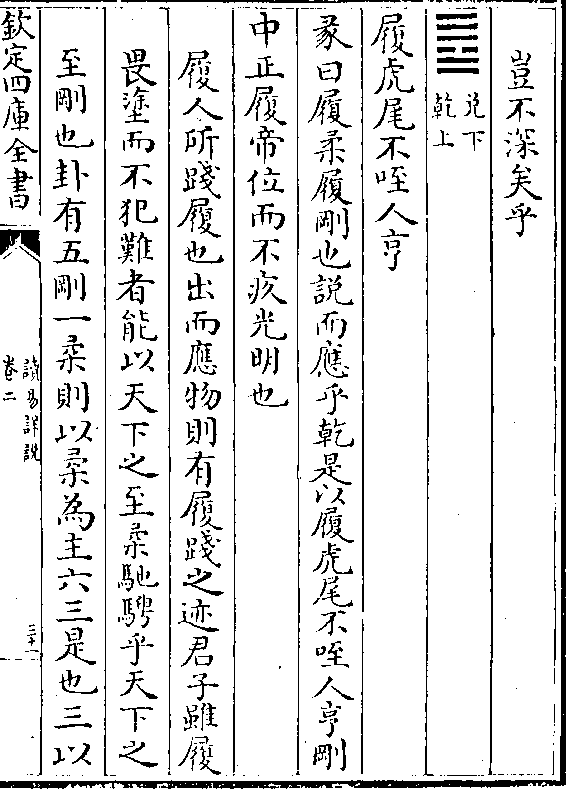 豈不深矣乎
兑下
乾上
履虎尾不咥人亨
彖曰履柔履剛也説而應乎乾是以履虎尾不咥人亨剛
中正履帝位而不疚光明也
履人所踐履也出而應物則有履踐之迹君子雖履
畏塗而不犯難者能以天下之至柔馳騁乎天下之
至剛也卦有五剛一柔則以柔為主六三是也三以
欽定四庫全書
讀易詳説
卷二
三十一